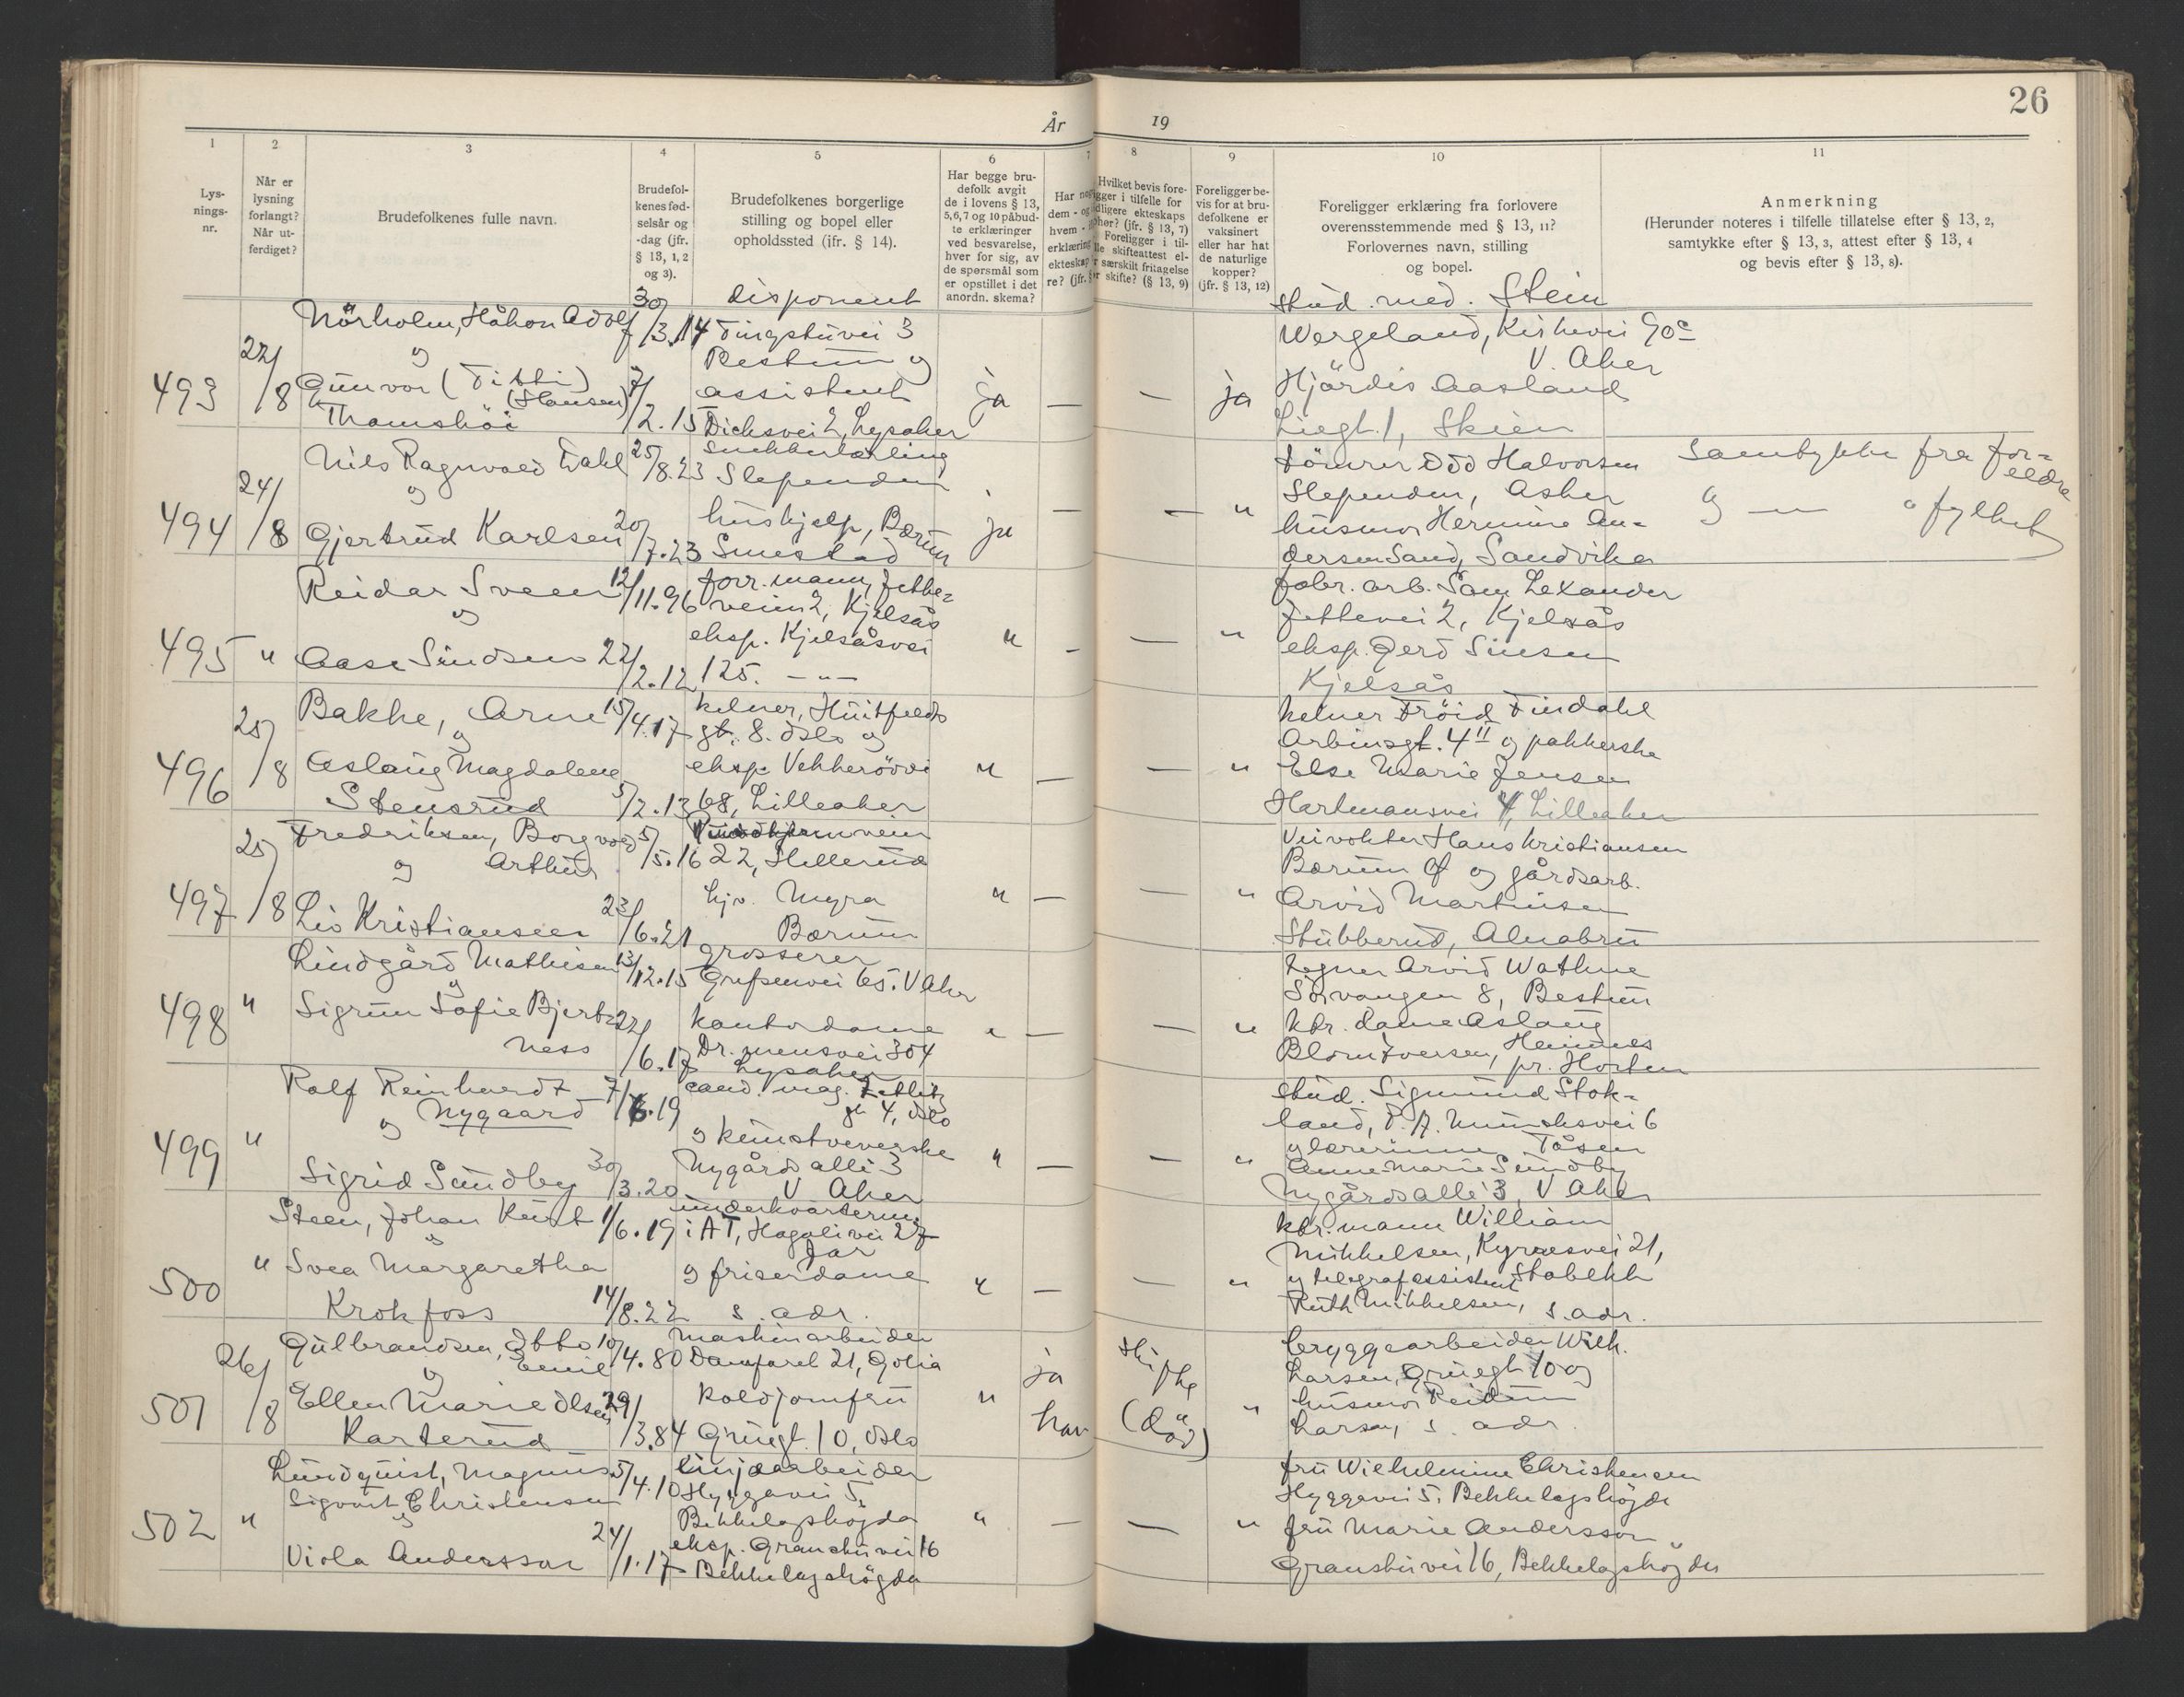 År 19
26
1
Lys-
nings-
nr.
2
Når er
lysning
forlangt?
Når ut-
ferdiget?
3
Brudefolkenes fulle navn.
4
Brudefol-
kenes fød-
selsår og
-dag (jfr.
§ 13, 1, 2
og 3).
5
Brudefolkenes borgerlige
stilling og bopel eller
opholdssted (ifr. § 14).
6
Har begge bru-
defolk avgit
de i lovens § 13,
5, 6, 7 og 10 påbud-
te erklæringer
ved besvarelse,
hver for sig, av
de spørsmål som
er opstillet i det
anordn. skema?
7
Har
dem - og
hvem -
erklæring
ekteskap
re? (jfr.
8
Hvilket bevis fore-
ligger i tilfelle for
tidligere ekteskaps
ophør? (jfr. § 13, 7)
Foreligger i til-
felle skifteattest el-
ler særskilt fritagelse
for skifte? (§ 13, 9)
9
Foreligger be-
vis for at bru-
defolkene er
vaksinert
eller har hat
de naturlige
kopper?
(jfr. § 13, 12)
10
Foreligger erklæring fra forlovere
overensstemmende med § 13, 11?
Forlovernes navn, stilling
og bopel.
11
Anmerkning
(Herunder noteres i tilfelle tillatelse efter § 13, 2,
samtykke efter § 13, 3, attest efter § 13, 4
og bevis efter § 13, 8).
493
22/8
Nörholm, Håkon Adolf
og
Gunvor (Titti)
(Hansen)
Thamshöi
30/3.14
7/2.15
disponent
Tingstuvei 3
Bestum og
assistent
Dicksvei 2, Lysaker
ja
—
—
ja
stud. med. Stein
Wergeland, Kirkevei 90c
V. Aker
Hjördis Aasland
Liegt. 1, Skien
494
24/8
Nils Ragnvald Dahl
og
Gjertrud Karlsen
25/8.23
20/7.23
snekkerlærling
Slependen
hushjelp, Bærum
Smestad
ja
—
—
"
tömrer Odd Halvorsen
Slependen, Asker
husmor Hermine An-
dersen Sand, Sandvika
Samtykke fra for-
eldre
og —"— " fylket
495
"
Reidar Sveen
og
Aase Sindsen
12/11.96
22/2.12
forr. mann, Jette-
veien 2, Kjelsås
eksp. Kjelsåsvei
125. —"—
"
-
—
"
fabr. arb. Sam Lexander
Jettevei 2, Kjelsås
eksp. Gerd Sinsen
Kjelsås
496
25/8
Bakke, Arne
og
Aslaug Magdalene
Stensrud
15/4.17
5/2.13
kelner, Huitfeldts
gt. 8. Oslo og
eksp. Vekkerövei
68, Lilleaker
"
—
—
"
kelner Fröid Findahl
Arbinsgt. 4 II og pakkerske
Else Marie Jensen
Hartmansvei 4, Lilleaker
497
25/8
Fredriksen, Borgvald
og Arthur
Liv Kristiansen
5/5.16
23/6.21
22, Hellerud
hjv. Myra
Bærum
"
—
—
"
Veivokter Hans Kristiansen
Bærum og gårdsarb.
Arvid Martinsen
Stubberud, Alnabru
498
"
Lindgård Mathisen
og
Sigrun Sofie Bjert-
ness
13/12.15
22/6.17
grosserer
Grefsenvei 65. V Aker
kontordame
Dr.mensvei 304
Lysaker
"
—
—
"
tegner Arvid Wathne
Sörvangen 8, Bestum
ktr. dame Aslaug
Blom Iversen, Heimnes
pr. Horten
499
"
Rolf Reinhardt
Nygaard
og
Sigrid Sundby
7/6.19
30/3.20
cand. mag. Zetlitz
gt 4, Oslo
og kunstveverske
Nygårds alle 3
V Aker
"
—
—
"
stud. Sigmund Stok-
land, P.A. Munchsvei 6
og lærerinne Tåsen
Anne Marie Sundby
Nygårds alle 3, V Aker
500
"
Steen, Johan Kurt
og
Svea Margaretha
Krokfoss
1/6.19
14/8.22
underkvarterm.
i AT, Hagalivei 27
Jar
og friserdame
s. adr.
"
—
—
"
ktr. mann William
Mikkelsen, Kyrresvei 21,
og telegrafassistent Stabekk
Ruth Mikkelsen, s. adr.
501
26/8
Gulbrandsen, Otto
Emil
og
Ellen Marie Olsen
Karterud
10/4.80
29/3.84
Maskinarbeider
Damfaret 21, Golia
koldjomfru
Gruegt. 10, Oslo
"
ja
har
skifte
(död)
"
bryggearbeider Wilh.
Larsen, Gruegt 10 og
husmor Reidun
Larsen, s. adr.
502
"
Lundquist, Magnus
Sigvart Christensen
og
Viola Andersson
5/4.10
24/1.17
linjearbeider
Hyggevei 5,
Bekkelagshögda
eksp. Granstuvei 16
Bekkelagshögda
"
—
—
"
fru Wilhelmine Christensen
Hyggevei 5. Bekkelagshögda
fru Marie Andersson
Granstuvei 16, Bekkelagshögda